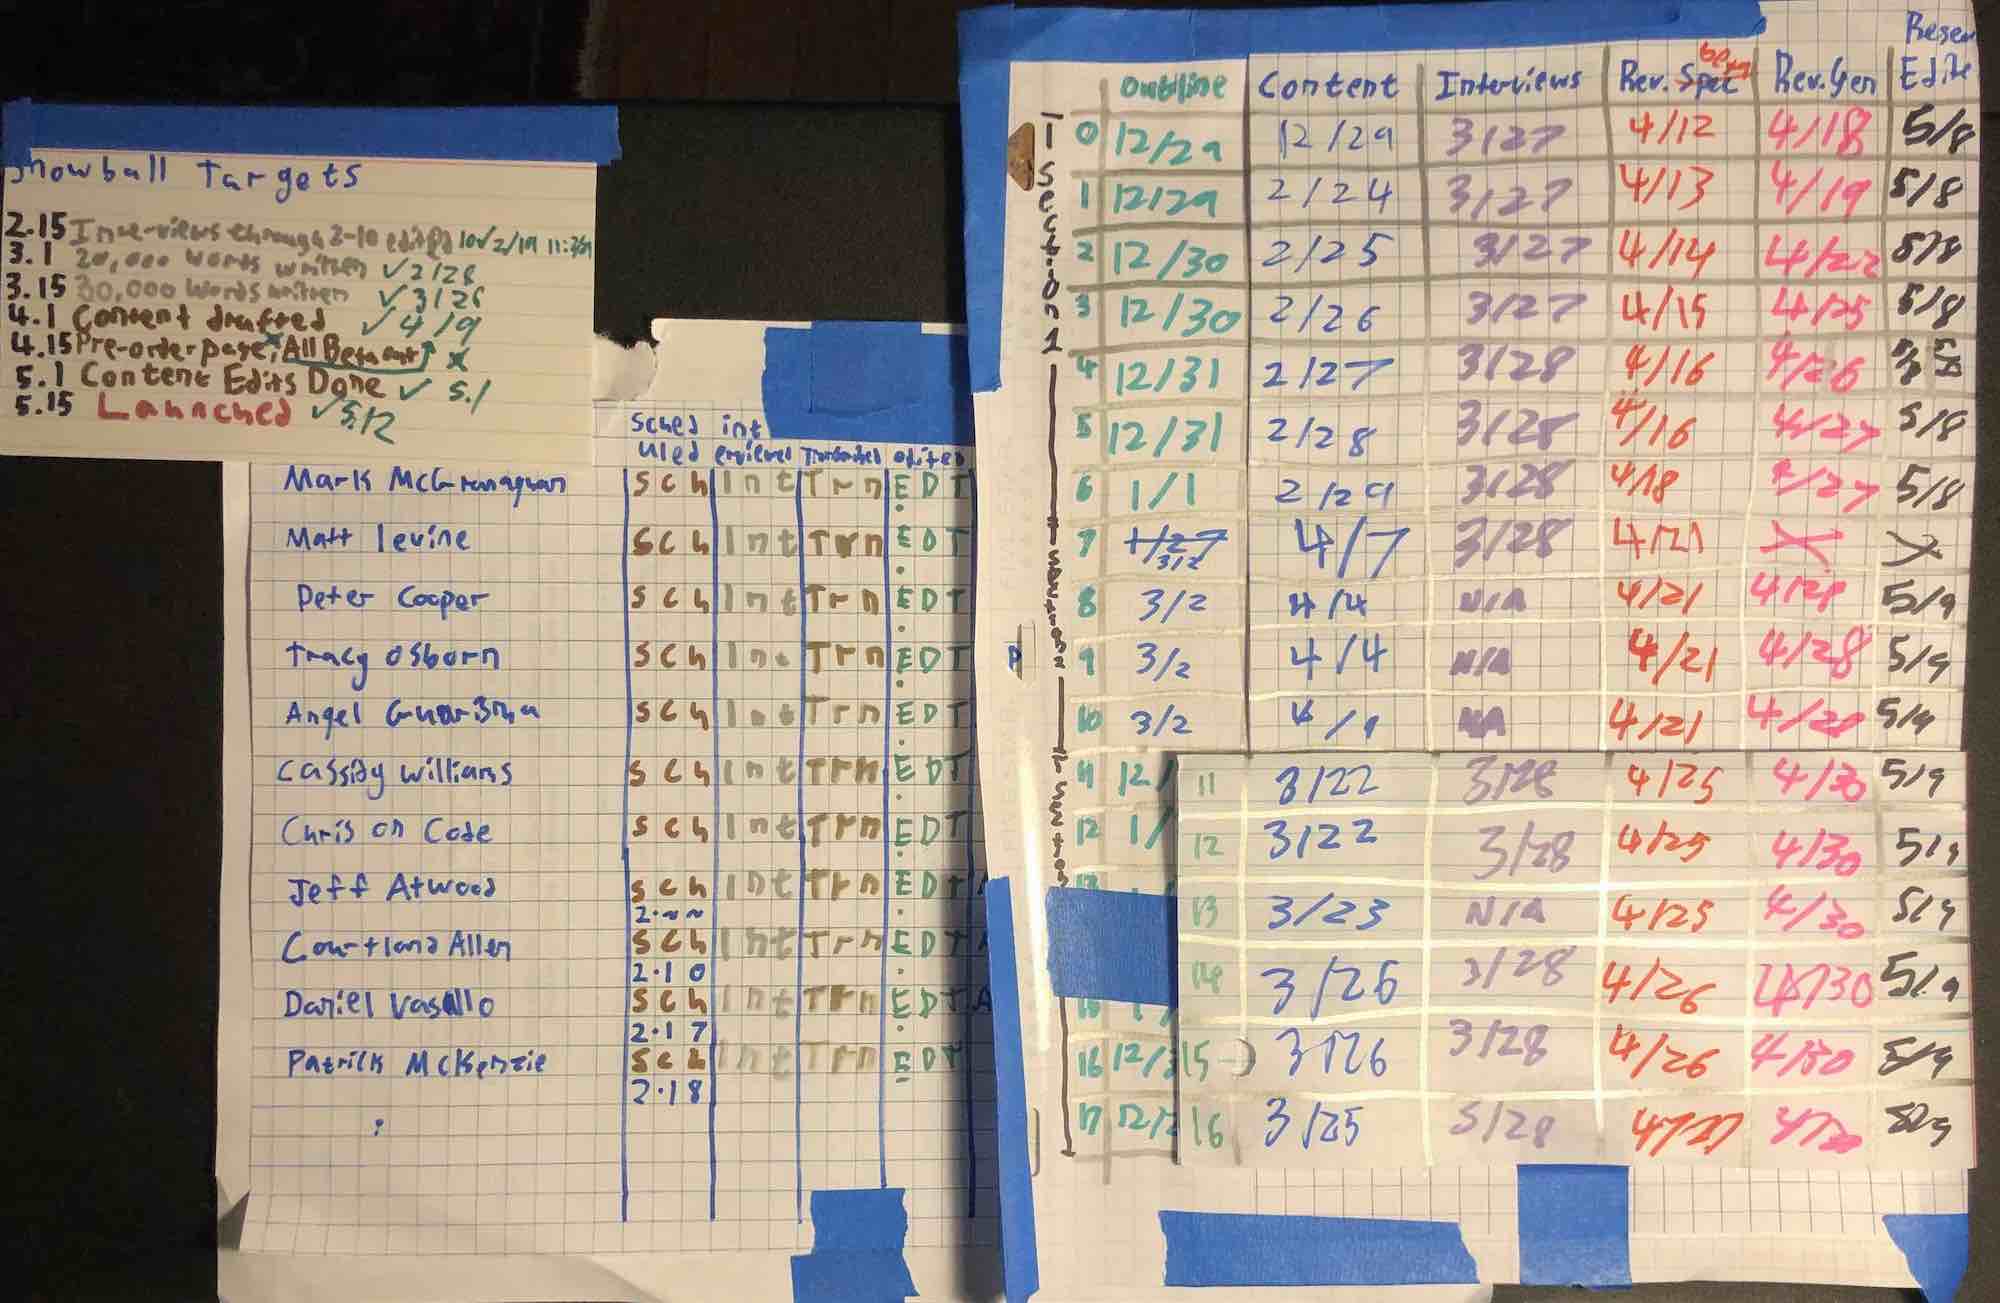 Snowball Targets
2.15 Interviews through 2-10 edited
3.1 20,000 words written ✓ 2/28
3.15 30,000 words written ✓ 3/26
4.1 Content drafted ✓ 4/9
4.15 Pre-order page, All Beta out x
5.1 Content Edits Done ✓ 5.1
5.15 Launched ✓ 5.12
Sched int
uled erviewed Transcribed edited
Mark McGranaghan Sch Int Trn EDT
Matt levine Sch Int Trn EDT
Peter Cooper Sch Int Trn EDT
Tracy Osborn Sch Int Trn EDT
Angel Sch Int Trn EDT
Cassidy williams Sch Int Trn EDT
Chris on Code Sch Int Trn EDT
Jeff Atwood Sch Int Trn EDT
Courtland Allen Sch Int Trn EDT
2.10
Daniel Vasallo Sch Int Trn EDT
2.17
Patrick McKenzie Sch Int Trn EDT
2.18
Section 1
Outline Content Interviews Rev. Spec Rev. Gen Edits
0 12/29 12/29 3/27 4/12 4/18 5/8
1 12/29 2/24 3/27 4/13 4/19 5/8
2 12/30 2/25 3/27 4/14 4/22 5/8
3 12/30 2/26 3/27 4/15 4/25 5/8
4 12/31 2/27 3/28 4/16 4/26
5 12/31 2/28 3/28 4/16 4/27 5/8
6 1/1 2/29 3/28 4/18 4/27 5/8
7 4/7 3/28 4/21 X X
8 3/2 4/4 N/A 4/21 4/28 5/9
9 3/2 4/4 N/A 4/21 4/28 5/9
10 3/2 NA 4/21 4/28 5/9
11 3/22 3/28 4/25 4/30 5/9
12 3/22 3/28 4/25 4/30 5/9
13 3/23 N/A 4/25 4/30 5/9
14 3/26 3/28 4/26 4/30 5/9
16 15 3/26 3/28 4/26 4/30 5/9
17 16 3/25 3/28 4/27 5/9